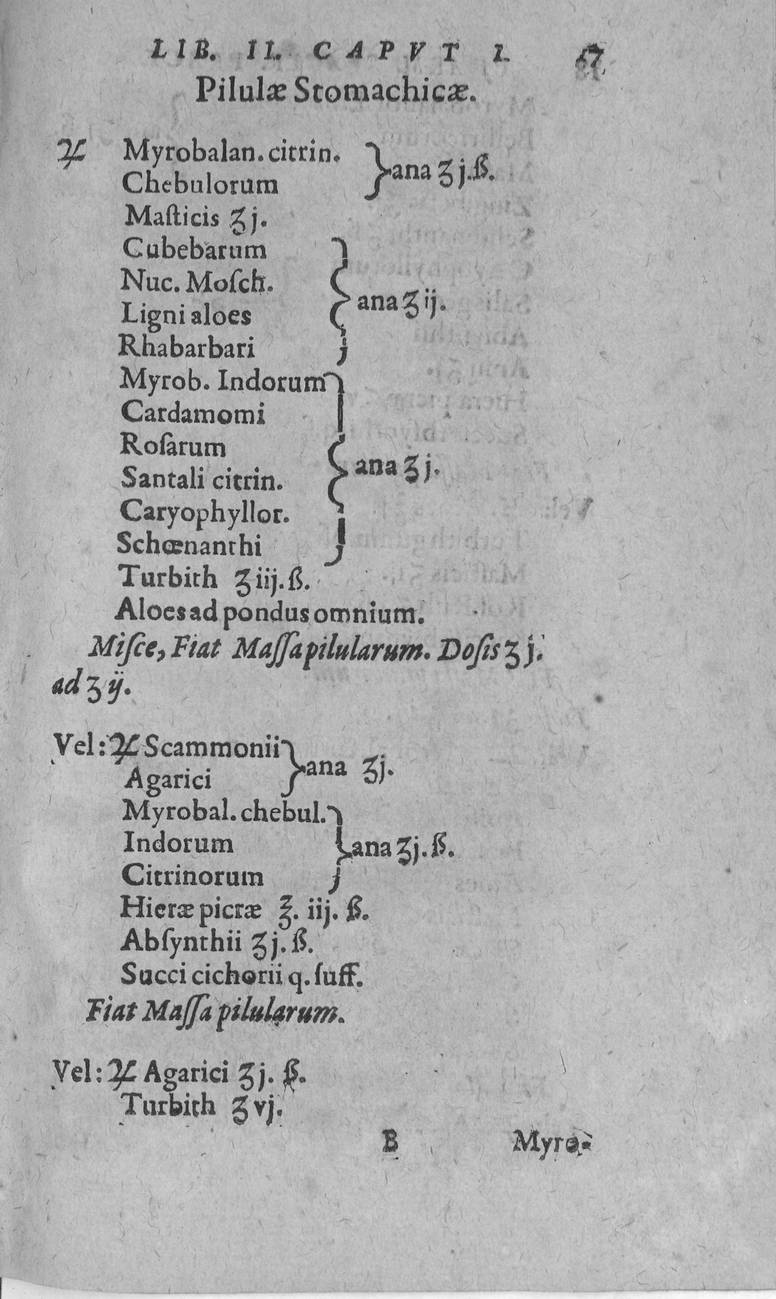 LIB. II. CAPVT I. 17
Pilulæ Stomachicæ.
♃ Myrobalan. citrin.
Chebulorum } ana ʒ j. ß.
Maſticis ʒ j.
Cubebarum
Nuc. Moſch.
Ligni aloes } ana ʒ ij.
Rhabarbari
Myrob. Indorum
Cardamomi
Roſarum
Santali citrin. } ana ʒ j.
Caryophyllor.
Schœnanthi
Turbith ʒ iij. ß.
Aloes ad pondus omnium.
Miſce, Fiat Maſſa pilularum. Doſis ʒ j.
ad ʒ ij.
Vel: ♃ Scammonii
Agarici } ana ʒj.
Myrobal. chebul.
Indorum } ana ʒj. ß.
Citrinorum
Hieræ picræ ℥. iij. ß.
Abſynthii ʒ j. ß.
Succi cichorii q. ſuff.
Fiat Maſſa pilularum.
Vel: ♃ Agarici ʒ j. ß.
Turbith ʒ vj.
B Myro-